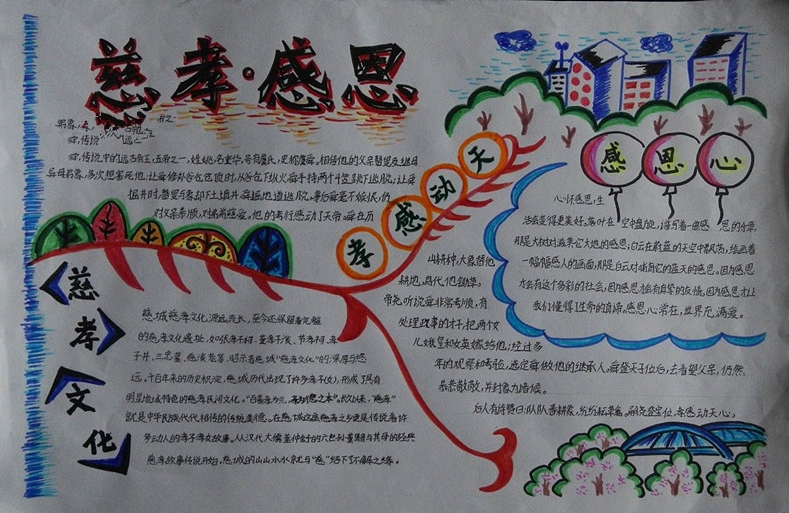 慈孝·感恩
舜,传说中的远古帝王,五帝之一,姓姚,名重华,号有虞氏,史称虞舜。相传他的父亲瞽叟及继母
异母弟象,多次想害死他:让舜修补谷仓仓顶时,从谷仓下纵火,舜手持两个斗笠跳下逃脱;让舜
掘井时,瞽叟与象却下土填井,舜掘地道逃脱。事后舜毫不嫉恨,仍
对父亲恭顺,对弟弟慈爱。他的孝行感动了天帝。舜在历
孝感动天
山耕种,大象替他
耕地,鸟代他锄草。
帝尧听说舜非常孝顺,有
处理政事的才干,把两个女
儿娥皇和女英嫁给他;经过多
年的观察和考验,选定舜做他的继承人。舜登天子位后,去看望父亲,仍然
恭恭敬敬,并封象为诸侯。
后人有诗赞曰:队队春耕象,纷纷耘草禽。嗣尧登宝位,孝感动天心。
感恩心
心怀感恩,生
活会变得更美好。落叶在空中盘旋,谱写着一曲感恩的乐章,
那是大树对滋养它大地的感恩;白云在蔚蓝的天空中飘荡,绘画着
一幅幅感人的画面,那是白云对哺育它的蓝天的感恩。因为感恩
才会有这个多彩的社会,因为感恩才会有真挚的友情,因为感恩才让
我们懂得了生命的真谛。感恩心常在,世界充满爱。
慈孝文化
慈城慈孝文化,源远流长,至今还保留着完整
的慈孝文化遗址,如张孝子祠、董孝子溪、节孝祠、孝
子井、三忠墓、慈湖老等,昭示着慈城"慈孝文化"的深厚与悠
远。千百年来的历史积淀,慈城历代出现了许多孝子(女),形成了具有
明显地域特色的慈孝民间文化。"百善孝为先,孝为德之本"。长久以来,"慈孝"
就是中华民族代代相传的传统美德。在慈城这座慈孝之乡更是传说着许
多动人的孝子孝女故事。从汉代大儒董仲舒的六世孙董黯与其母的经典
慈孝故事传说开始,慈城的山山水水就与"慈"结下了不解之缘。